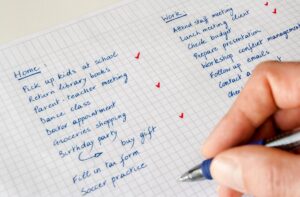 Home:
Pick up kids at school
Return library books
Parent-teacher meeting
Dance class
Doctor appointment
Groceries shopping
Birthday party
buy gift
Fill in tax form
Soccer practice
Work
Attend staff meeting
Lunch meeting client
Check budget
Prepare presentation
Workshop conflict management
Follow up emails
Contact a